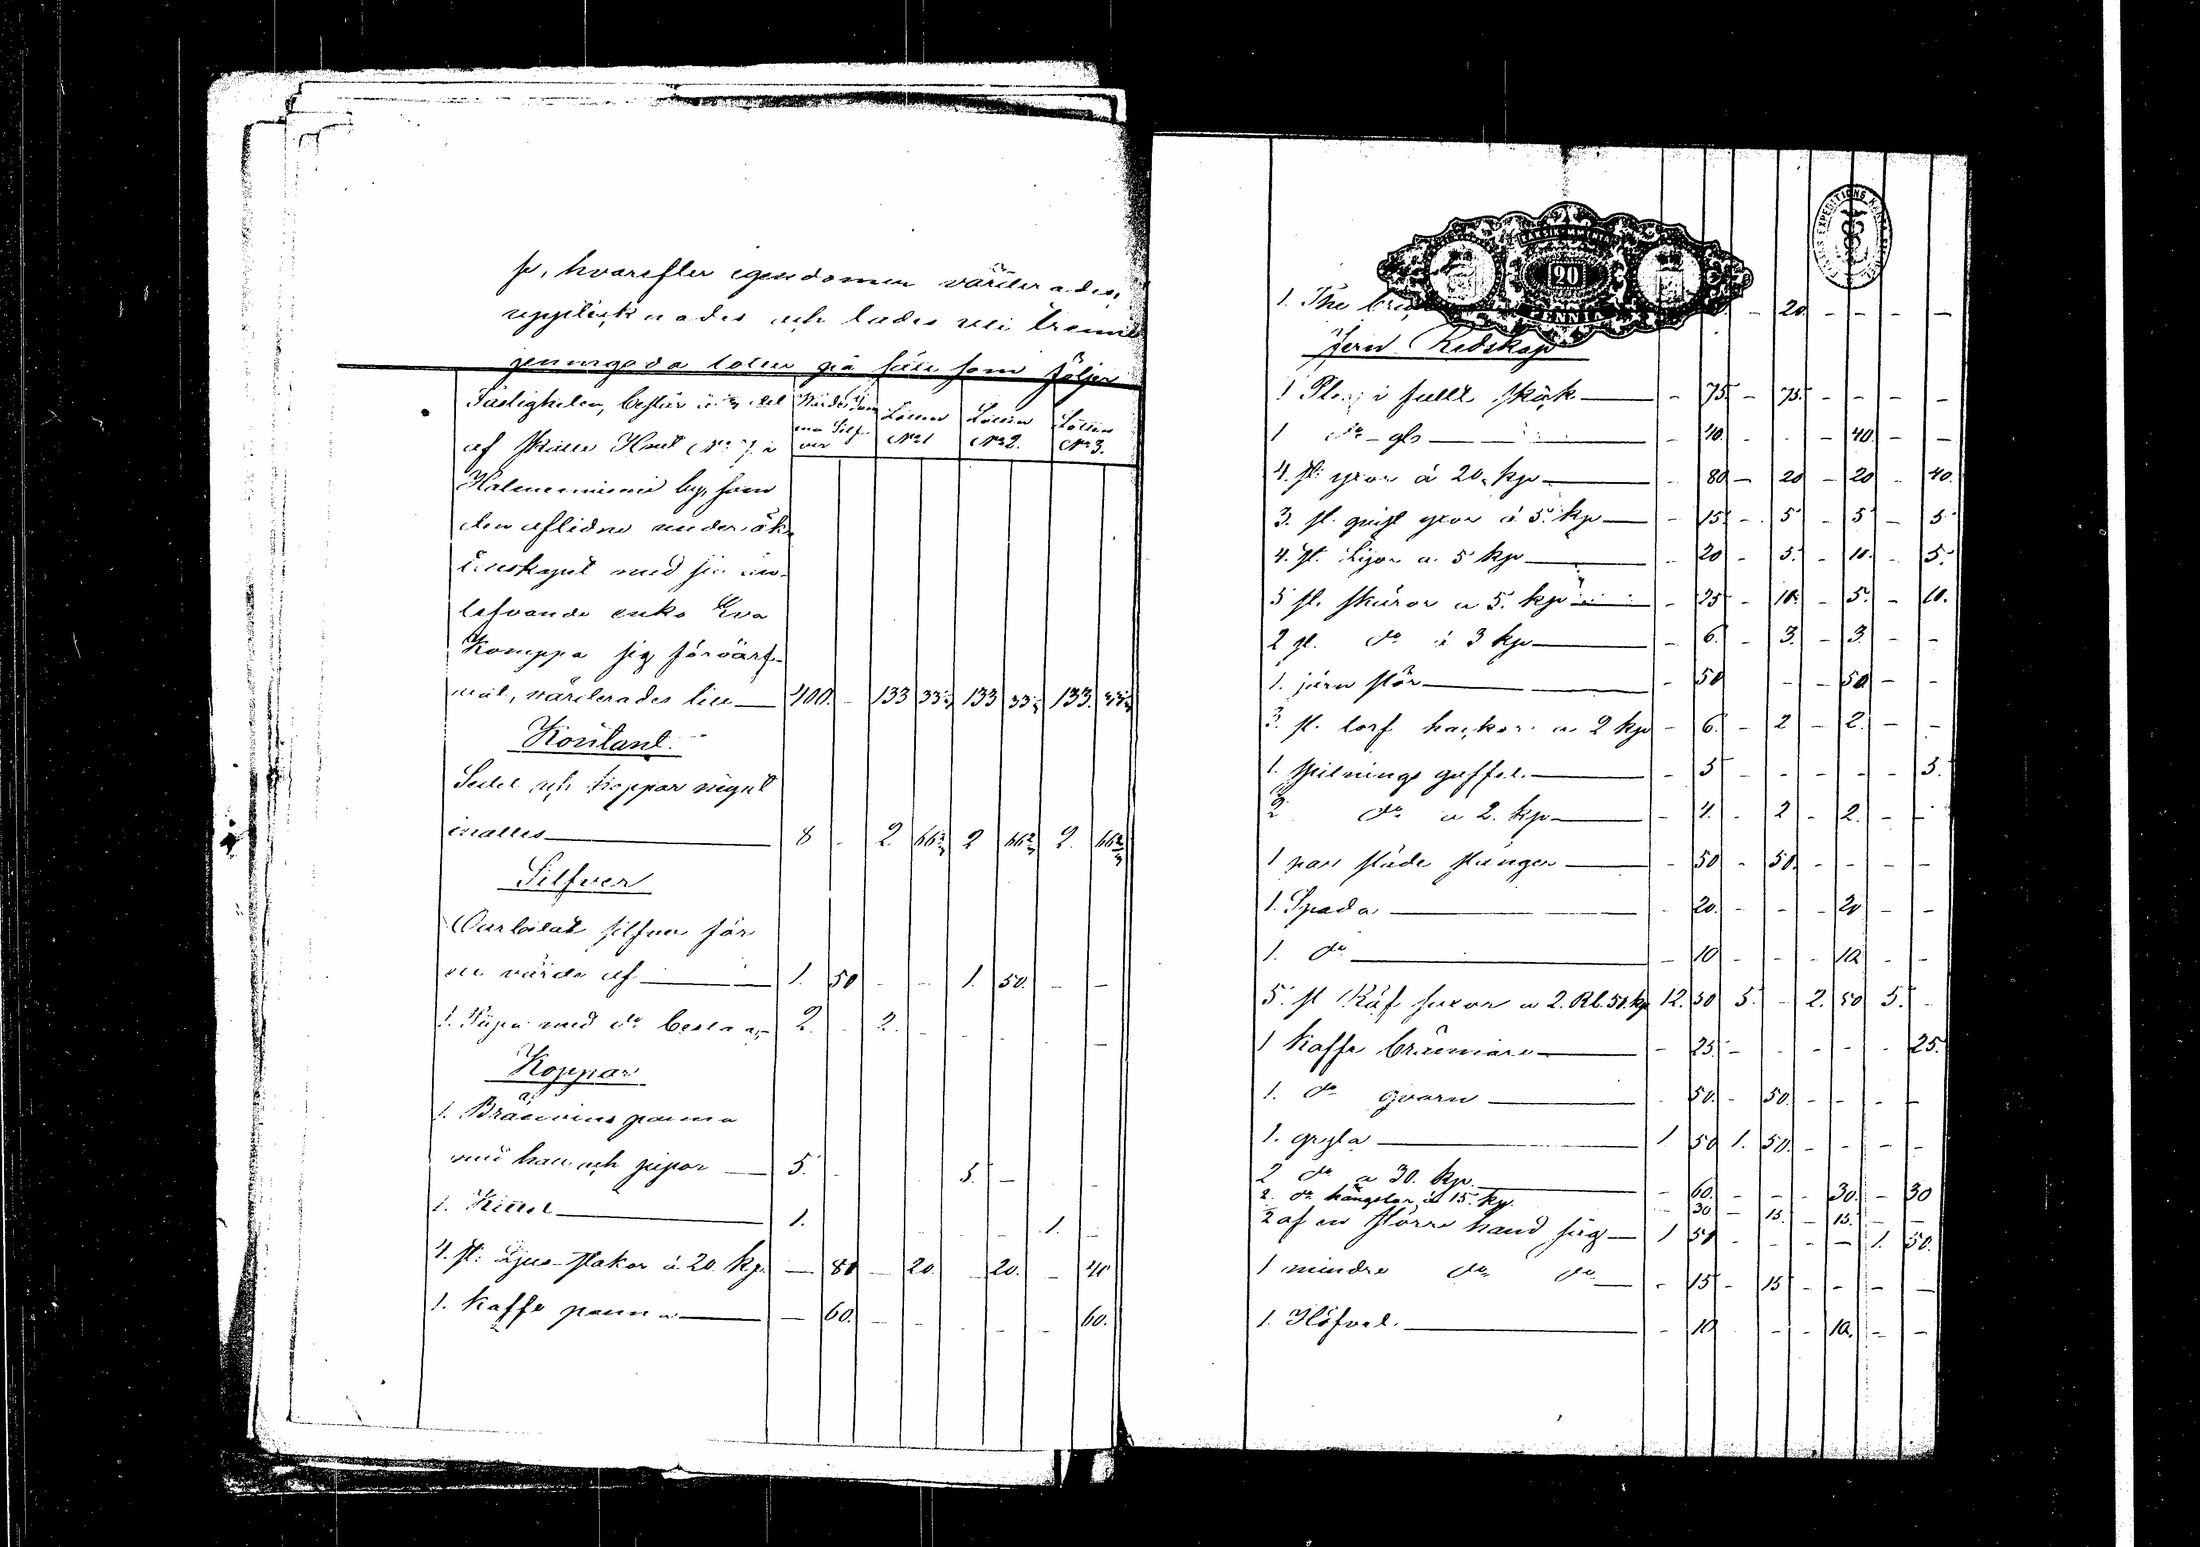 hvarefter egendomen värderades,
upptecknades och lades uti trenne
penningoda lotter på sätt som följer
Fastigheten, består
Lotten No 1
Lotten No 2.
Lotten No 3.
af Skatte Hemt No 7 i
by, som
den aflidne under äkt
enskapet med sin
lefvande enka Eva
Komppa sig förvärf-
vat, värderades till — 400. - 133 33⅓ 133 33⅓ 133. 33⅓
Kontant.
Sedel och Koppar mynt
inalles — 8 - 2. 66⅔ 2 66⅔ 2. 66⅔
Silfver
Oarbetat silfver för
ett värde af — 1. 50 - - 1. 50. - -
1. Pipa med do beslag 2. - 2. - - - -
Koppar
1. Bränvins panna
med hatt och pipor — 5. - 5. — -
1. Kittel — 1. - - - - 1. -
4. st: Ljus-stakar á 20 kp. — 80 — 20. - 20. - 40
1. Kaffe panna — — 60. - - - - - 60.
LEIMAKONTTORI
20
PENNIÄ
EXPEDITIONS
1. The - 20. - - - -
Jern Redskap
1 Plog i fullt skick — - 75 - 75. - - - -
1 do - gl — - 40. - - - 40. - -
4. st: yxor á 20. kp — - 80 - 20 - 20 - 40.
3. st. qvist yxor á 5. kp — - 15. - 5 - 5 - 5
4. st. Lijor a 5 kp — - 20 - 5. - 10. - 5.
5 st. skäror a 5. kp — - 25 - 10. - 5. - 10.
2 gl. do á 3 kp — - 6. - 3. - 3. - -
1. järn stör — - 50 - - - 50 - -
3. st. torf hackor a 2 kp - 6. - 2 - 2. - -
1. spilnings gaffel. — - 3 - - - - - 3.
2 do a 2. kp — - 4. - 2 - 2. - -
1 par släde stänger — - 50 - 50. - - - -
1. Spada — - 20. - - - 20 - -
1. do — - 10 - - - 10 - -
5. st Räf saxar a 2. Rb. 50 kp 12. 50 5. - 2. 50 5. -
1 Kaffe brännare — - 25. - - - - - 25.
1. do qvarn — - 50. - 50. - - - -
1. gryta — 1 50 1. 50. - - - -
2 do a 30. kp. — - 60. - - - 30. - 30
2. do hängslor á 15 kp. - 30 - 15. - 15. - -
2 af en större hand såg — 1 50 - - - - 1. 50.
1 mindre do do — - 15 - 15 - - - -
1. Höfvel. — - 10 - - - 10. - -